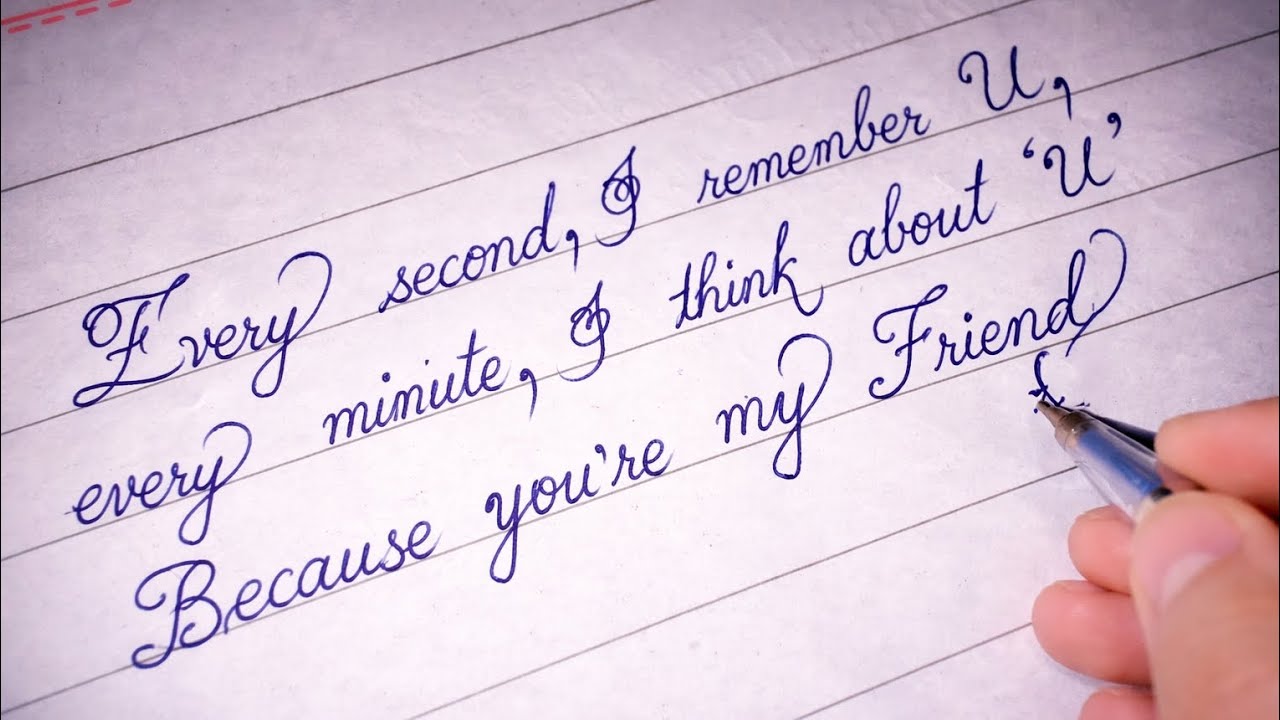 Every second, I remember U,
every minute, I think about ‘U’
Because you're my Friend